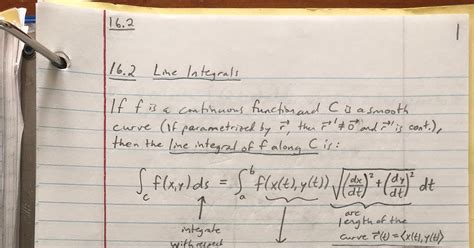 16.2
1
16.2 Line Integrals
If f is a continuous function and C is a smooth
curve (if parametrized by r⃗, then r⃗' ≠ 0⃗ and r⃗' is cont.),
then the line integral of f along C is:
∫_C f(x,y) ds = ∫_a^b f(x(t), y(t)) √((dx/dt)² + (dy/dt)²) dt
integrate
with respect
arc
length of the
curve r⃗(t) = ⟨x(t), y(t)⟩